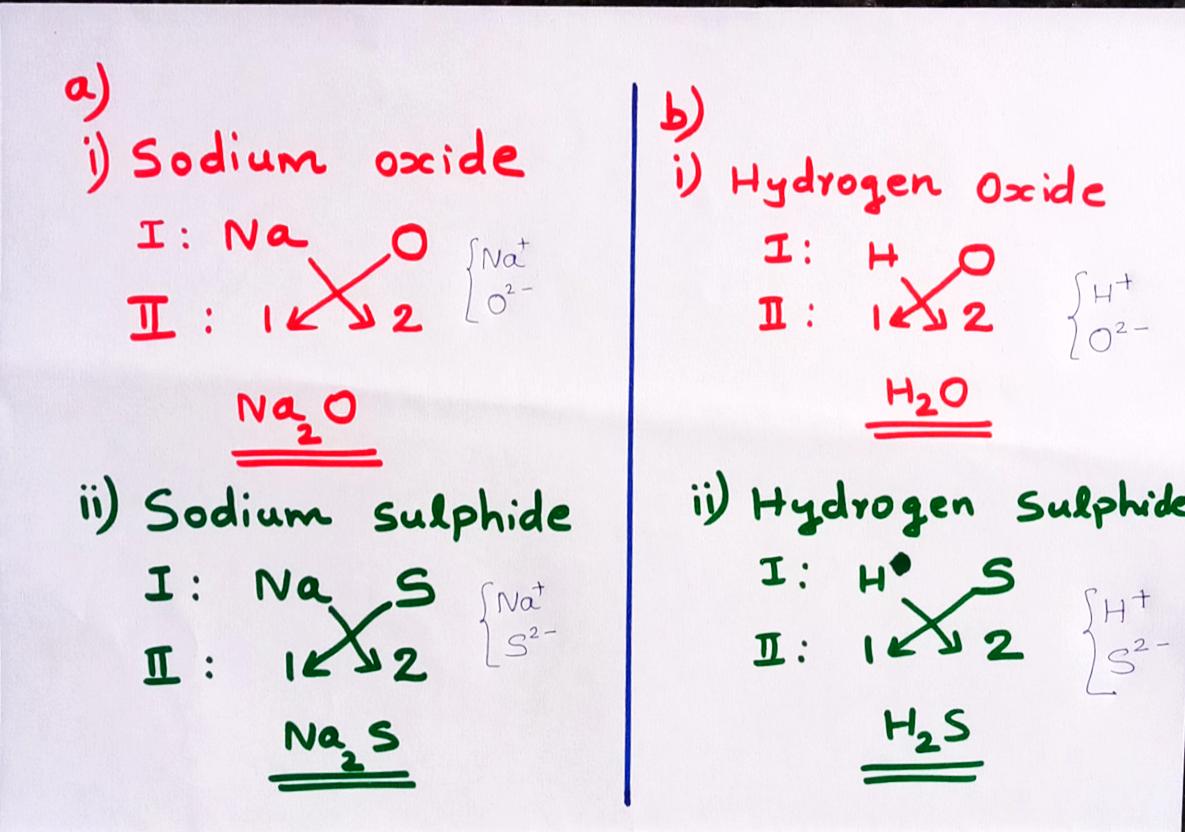 a)
i) Sodium oxide
I : Na O
{Na⁺
O²⁻
II : 1 2
Na₂O
ii) Sodium sulphide
I : Na S
{Na⁺
S²⁻
II : 1 2
Na₂S
b)
i) Hydrogen Oxide
I : H O
{H⁺
O²⁻
II : 1 2
H₂O
ii) Hydrogen Sulphide
I : H S
{H⁺
S²⁻
II : 1 2
H₂S